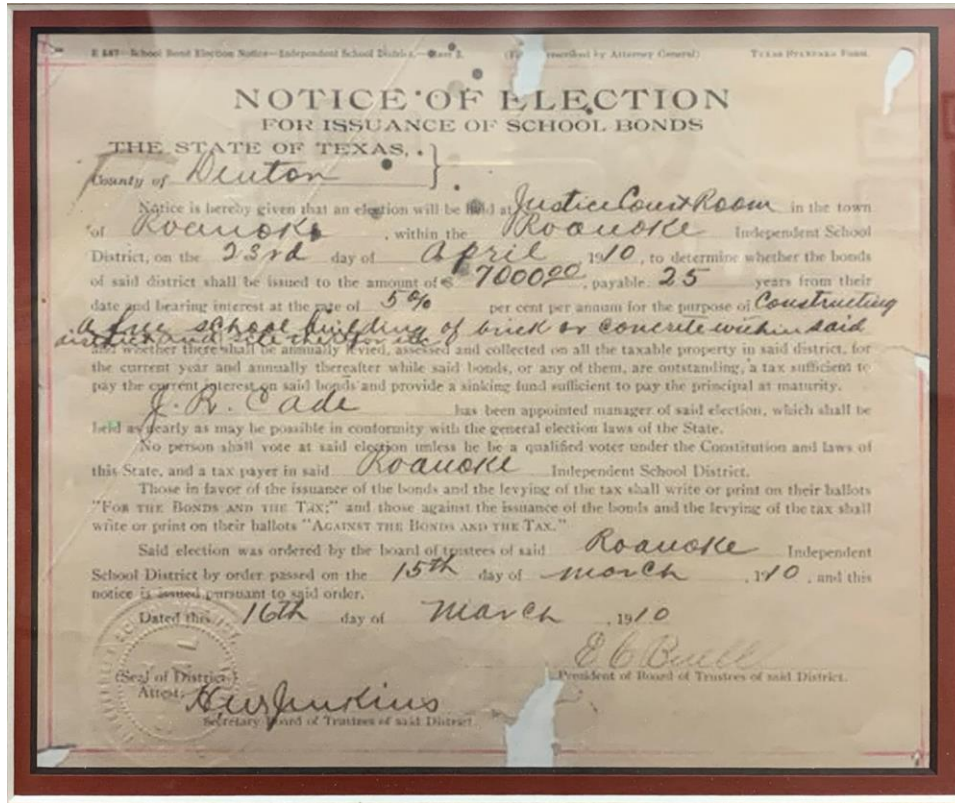 E 487—School Bond Election Notice—Independent School District.—Class 2. (Form Prescribed by Attorney General) TEXAS STANDARD FORM
NOTICE OF ELECTION
FOR ISSUANCE OF SCHOOL BONDS
THE STATE OF TEXAS,
County of Denton
Notice is hereby given that an election will be held at Justice Court Room in the town
of Roanoke, within the Roanoke Independent School
District, on the 23rd day of April 1910, to determine whether the bonds
of said district shall be issued to the amount of $ 7000.00, payable 25 years from their
date and bearing interest at the rate of 5% per cent per annum for the purpose of Constructing
a free school building of brick or concrete within said
district and site therefor etc
and whether there shall be annually levied, assessed and collected on all the taxable property in said district, for
the current year and annually thereafter while said bonds, or any of them, are outstanding, a tax sufficient to
pay the current interest on said bonds and provide a sinking fund sufficient to pay the principal at maturity.
J. R. Cade has been appointed manager of said election, which shall be
held as nearly as may be possible in conformity with the general election laws of the State.
No person shall vote at said election unless he be a qualified voter under the Constitution and laws of
this State, and a tax payer in said Roanoke Independent School District.
Those in favor of the issuance of the bonds and the levying of the tax shall write or print on their ballots
"FOR THE BONDS AND THE TAX;" and those against the issuance of the bonds and the levying of the tax shall
write or print on their ballots "AGAINST THE BONDS AND THE TAX."
Said election was ordered by the board of trustees of said Roanoke Independent
School District by order passed on the 15th day of March, 1910, and this
notice is issued pursuant to said order.
Dated this 16th day of March, 1910
E C Buell
President of Board of Trustees of said District.
(Seal of District)
Attest: Jenkins
Secretary Board of Trustees of said District.